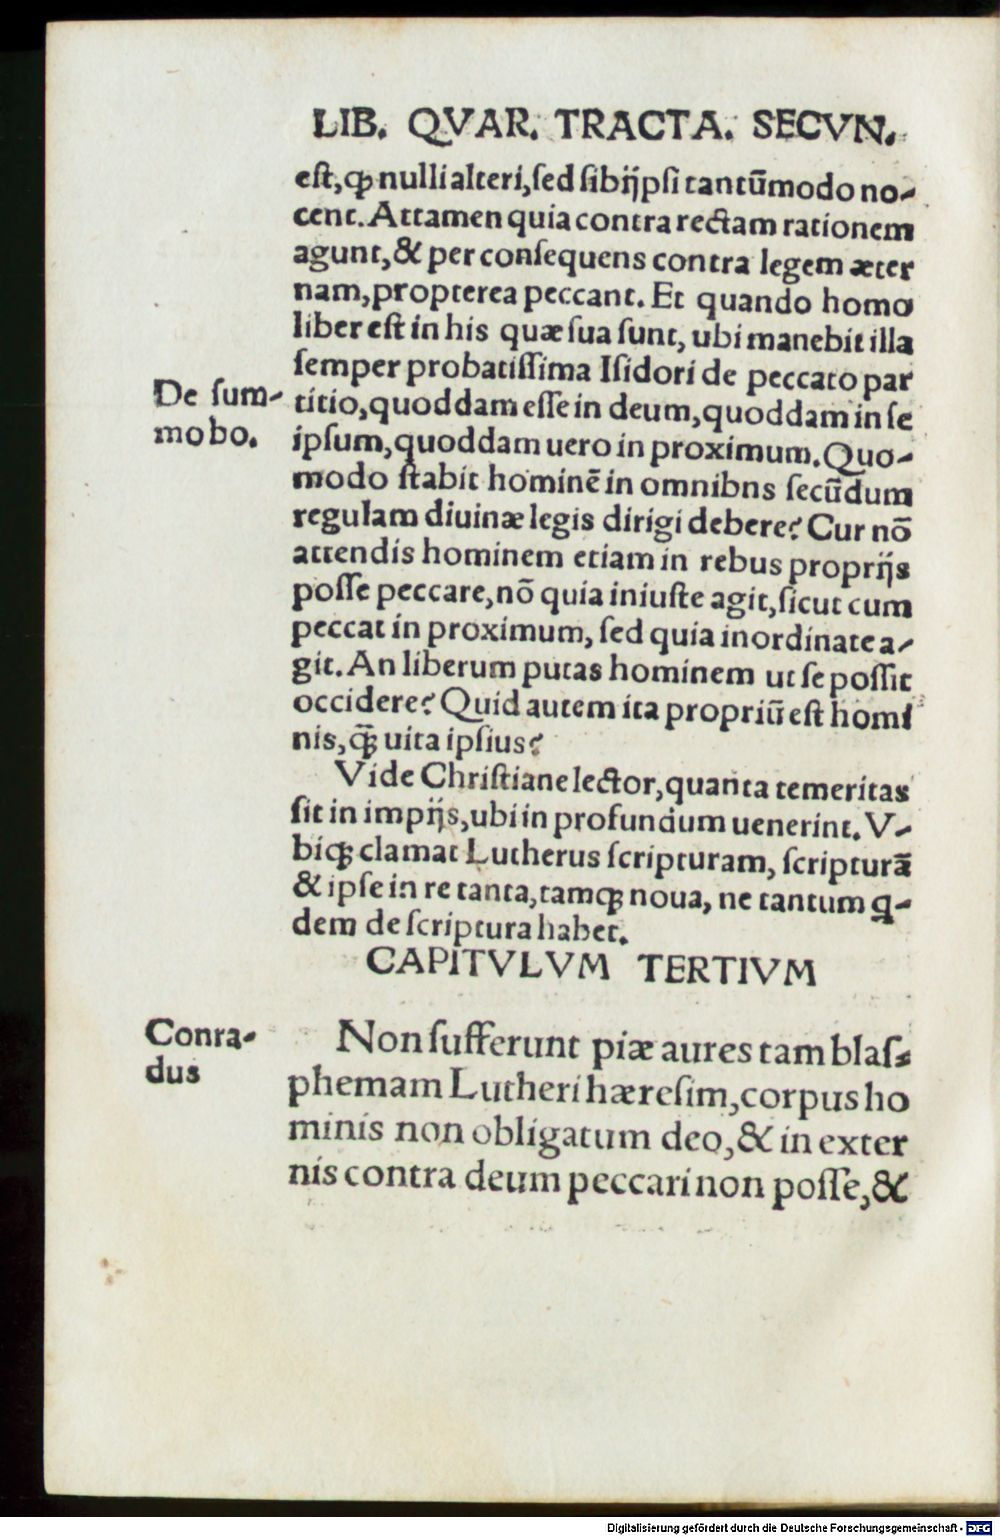 LIB. QVAR. TRACTA. SECVN.
eſt, ꝙ nulli alteri, ſed ſibijpſi tantūmodo no-
cent. Attamen quia contra rectam rationem
agunt, & per conſequens contra legem æter
nam, propterea peccant. Et quando homo
liber eſt in his quæ ſua ſunt, ubi manebit illa
ſemper probatiſſima Iſidori de peccato par
De ſum-
mo bo.
titio, quoddam eſſe in deum, quoddam in ſe
ipſum, quoddam uero in proximum. Quo-
modo ſtabit hominē in omnibns ſecūdum
regulam diuinæ legis dirigi debere? Cur nō
attendis hominem etiam in rebus proprijs
poſſe peccare, nō quia iniuſte agit, ſicut cum
peccat in proximum, ſed quia inordinate a-
git. An liberum putas hominem ut ſe poſſit
occidere? Quid autem ita propriū eſt homi
nis, ꝙ̃ uita ipſius?
Vide Chriſtiane lector, quanta temeritas
ſit in impijs, ubi in profundum uenerint. V-
biqꝫ clamat Lutherus ſcripturam, ſcripturā
& ipſe in re tanta, tamqꝫ noua, ne tantum ꝗ-
dem de ſcriptura habet.
CAPITVLVM TERTIVM
Conra-
dus
Non ſufferunt piæ aures tam blaſ-
phemam Lutheri hæreſim, corpus ho
minis non obligatum deo, & in exter
nis contra deum peccari non poſſe, &
Digitalisierung gefördert durch die Deutsche Forschungsgemeinschaft - DFG